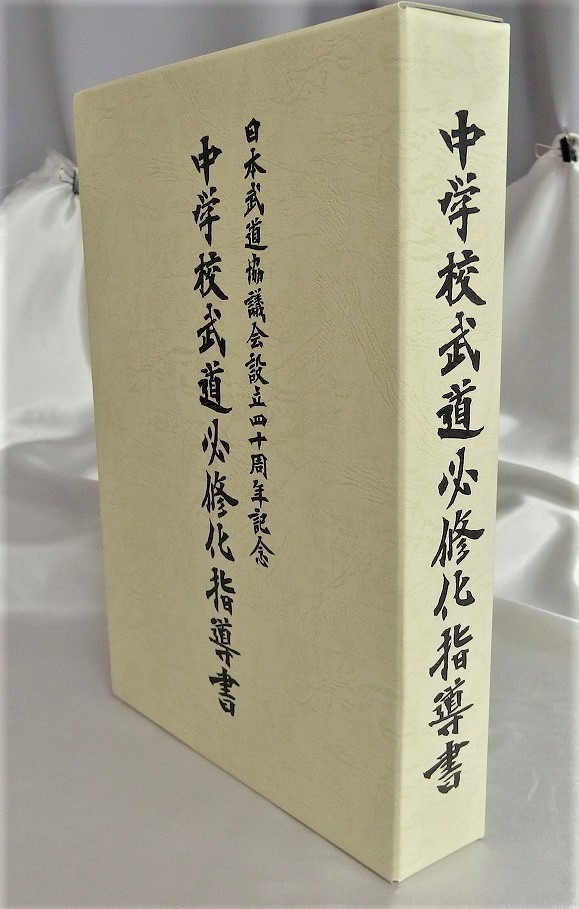 日本武道協議会設立四十周年記念
中学校武道必修化指導書
中学校武道必修化指導書